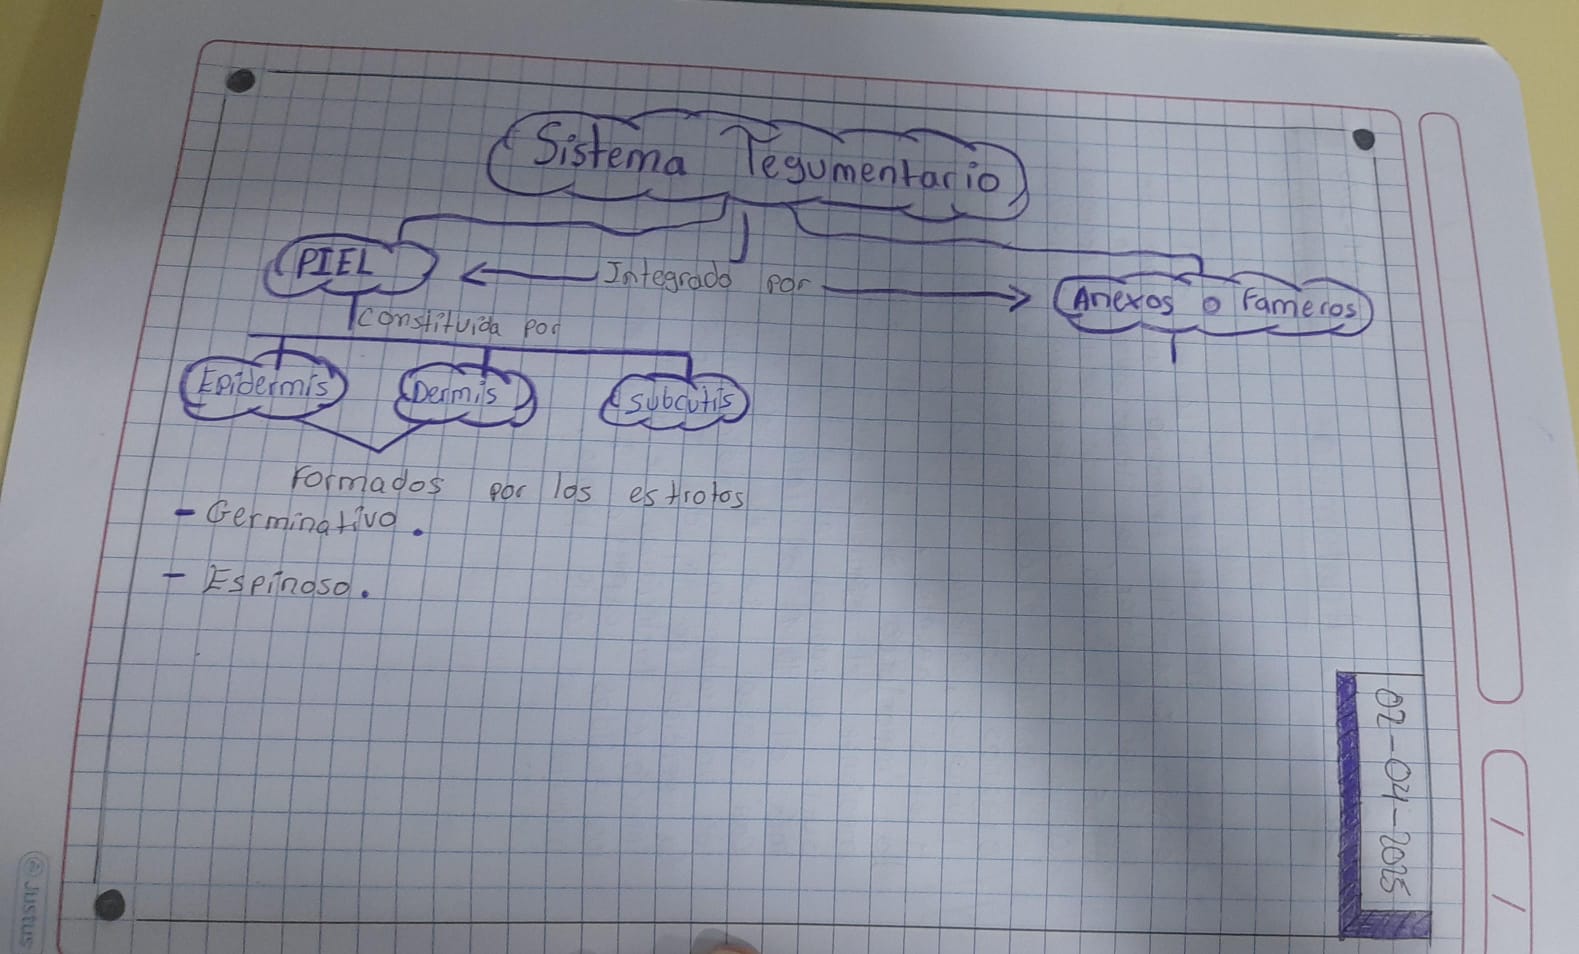 Sistema Tegumentario
PIEL
Integrado por
Anexos o Fameros
constituida por
Epidermis
Dermis
Subcutis
Formados por los estratos
- Germinativo.
- Espinoso.
02-04-2025
Justus